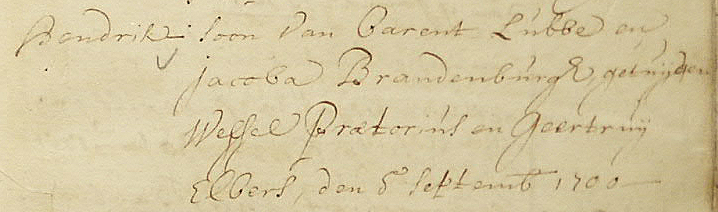 Hendrik soon van Barent Lubbe en
Jacoba Brandenburgh, getuijgen
Wessel Prætorius en Geertruij
Elbers, den 8 septemb 1700